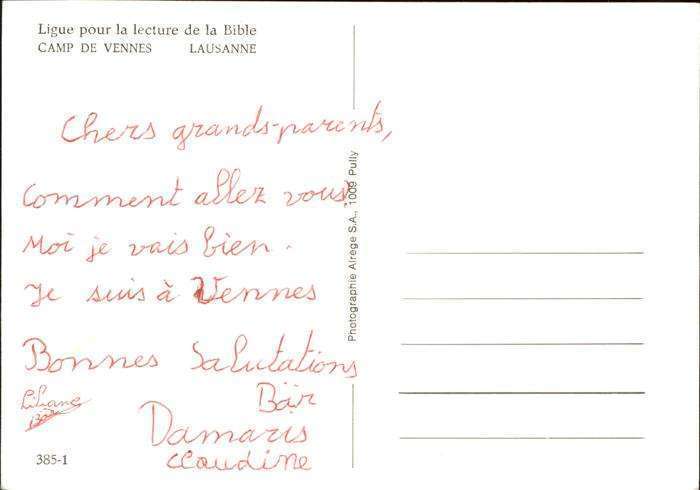 Ligue pour la lecture de la Bible
CAMP DE VENNES LAUSANNE
Chers grands-parents,
Comment allez vous?
Moi je vais bien.
Je suis à Vennes
Bonnes Salutations
Liliane
Bär
Bär
Damaris
Claudine
385-1
Photographie Airege S.A., 1009 Pully